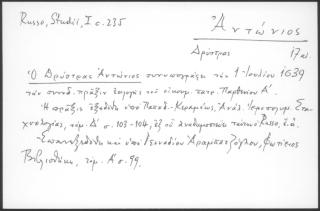 Russo, Studii, I σ. 235
Ἀντώνιος
Δρύστρας 17 αι.
Ὁ Δρύστρας Ἀντώνιος συνυπογράφει τὴν 1 Ἰουλίου 1639
τὴν συνοδ. πρᾶξιν ἐκλογῆς τοῦ οἰκουμ. πατρ. Παρθενίου Α'.
Ἡ πρᾶξις ἐξεδόθη ὑπὸ Παπαδ.-Κεραμέως, Ἀνάλ. Ἱεροσολυμ. Στα-
χυολογίας, τόμ. Δ' σ. 103-104, ἐξ οὗ ἀναδημοσιεύει ταύτην ὁ Russo, ἔ.ἀ.
Ἐπανεξεδόθη καὶ ὑπὸ Γενναδίου Ἀραμπατζόγλου, Φωτίειος
Βιβλιοθήκη, τόμ. Α' σ. 99.